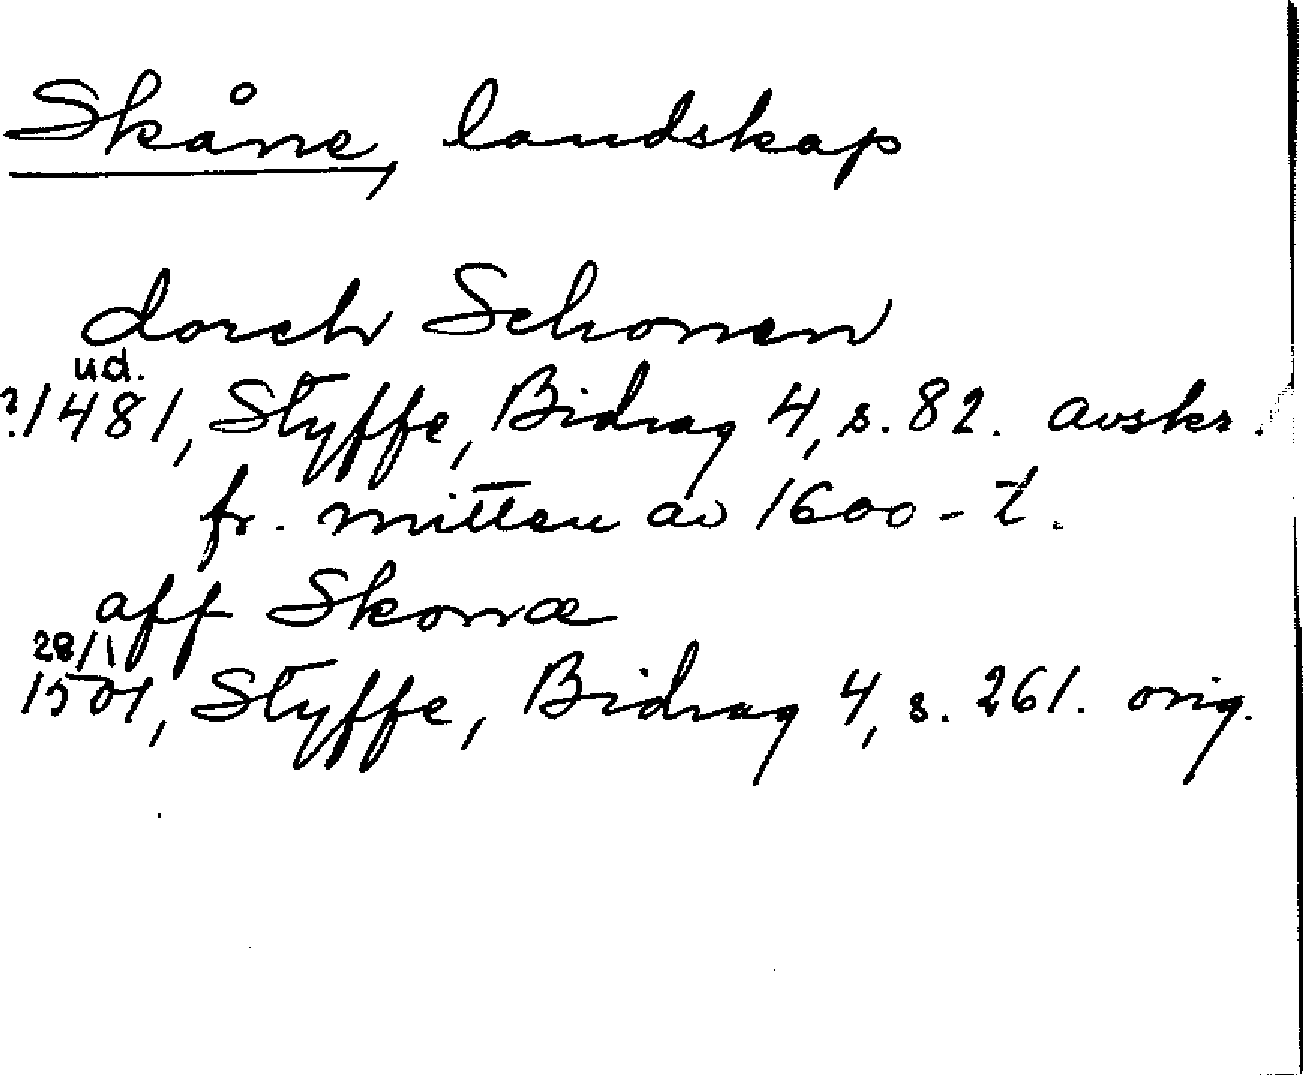 Skåne, landskap
dorch Schonen
ud.
?1481, Styffe, Bidrag 4, s. 82. avskr.
fr. mitten av 1600-t.
aff Skonæ
28/1
1501, Styffe, Bidrag 4, s. 261. orig.